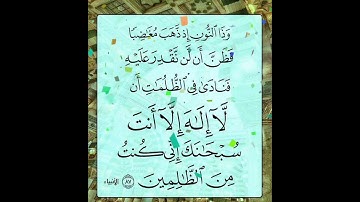 وَذَا ٱلنُّونِ إِذ ذَّهَبَ مُغَٰضِبًا
فَظَنَّ أَن لَّن نَّقْدِرَ عَلَيْهِ
فَنَادَىٰ فِى ٱلظُّلُمَٰتِ أَن
لَّآ إِلَٰهَ إِلَّآ أَنتَ
سُبْحَٰنَكَ إِنِّى كُنتُ
مِنَ ٱلظَّٰلِمِينَ ٨٧ الأنبياء